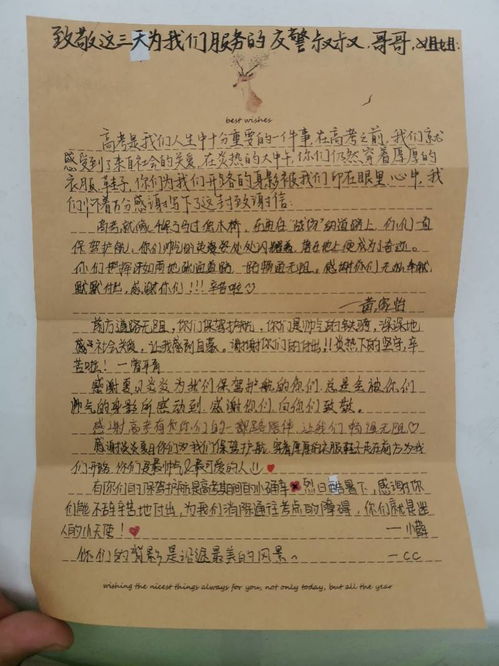 致敬这三天为我们服务的交警叔叔、哥哥、小姐姐:
best wishes
高考是我们人生中十分重要的一件事,在高考之前,我们就
感受到了来自社会的关爱,在炎热的大中午,你们仍然穿着厚厚的
衣服、鞋子,你们为我们开路的身影被我们印在眼里、心中,我
们怀着万分感谢写下了这封致谢信.
高考就像千军万马过独木桥,在通往"战场"的道路上,你们一直
保驾护航,你们
你们把挥洒如雨地疏通道路 畅通无阻,感谢你们无私奉献
默默付出,感谢你们!!!辛苦啦♡
前方道路无阻,你们保驾护航,你们是帅气的铁骑,深深地
感 社会关爱,让我感到自豪,谢谢你们的付出!!炎热下的坚守,辛
苦啦!
感谢夏日炎炎为我们保驾护航的你们 总是会被你们
帅气的身影所感动到,感谢你们,向你们致敬。
感谢高考有你们的一路陪伴 让我们畅通无阻♡
感谢炎炎夏日你们为我们保驾护航,穿着厚厚的衣服鞋子走在前方为我
们开路,你们是最帅气最可爱的人!!❤
有你们的保驾护航是高考期间的小确幸❤烈日酷暑下,感谢你
们能不辞辛苦地付出,为我们消除通往考点的障碍,你们就是迷
人的小天使!❤
你们的背影是沿途最美的风景~ —cc
wishing the nicest things always for you, not only today, but all the year